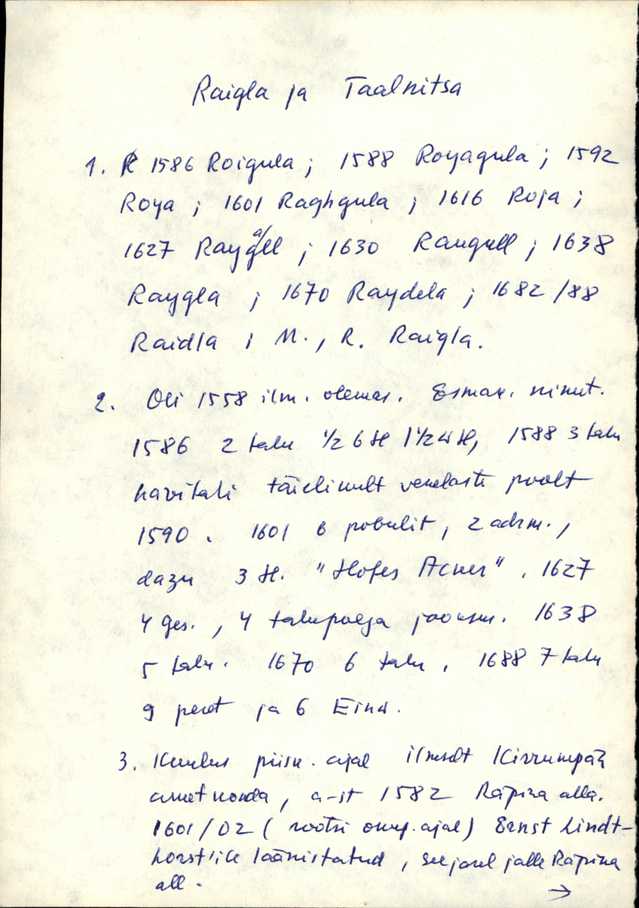 Raigla ja Taalnitsa
1. 1586 Roigula ; 1588 Royagula ; 1592
Roya ; 1601 Raghgula ; 1616 Roja ;
1627 Raygall ; 1630 Raugull ; 1638
Raygla ; 1670 Raydela ; 1682/88
Raidla ; M., R. Raigla.
2. Oli 1558 ilm. olemas. Esmak. nimet.
1586 2 talu 1/2 6 H 1 1/2 H, 1588 3 talu
hävitati täielikult venelaste poolt
1590. 1601 6 pobulit, 2 adrm.,
dazu 3 H. "Hofes Acker". 1627
4 ges., 4 talupoega jooksn. 1638
5 talu. 1670 6 talu, 1688 7 talu
9 peret ja 6 Einw.
3. Kuulus piisk. ajal ilmselt Kirrumpää
ametkonda, a-st 1582 Räpina alla.
1601/02 (rootsi okup. ajal) Ernst Lindt-
horstile läänistatud, seejärel jälle Räpina
all. →